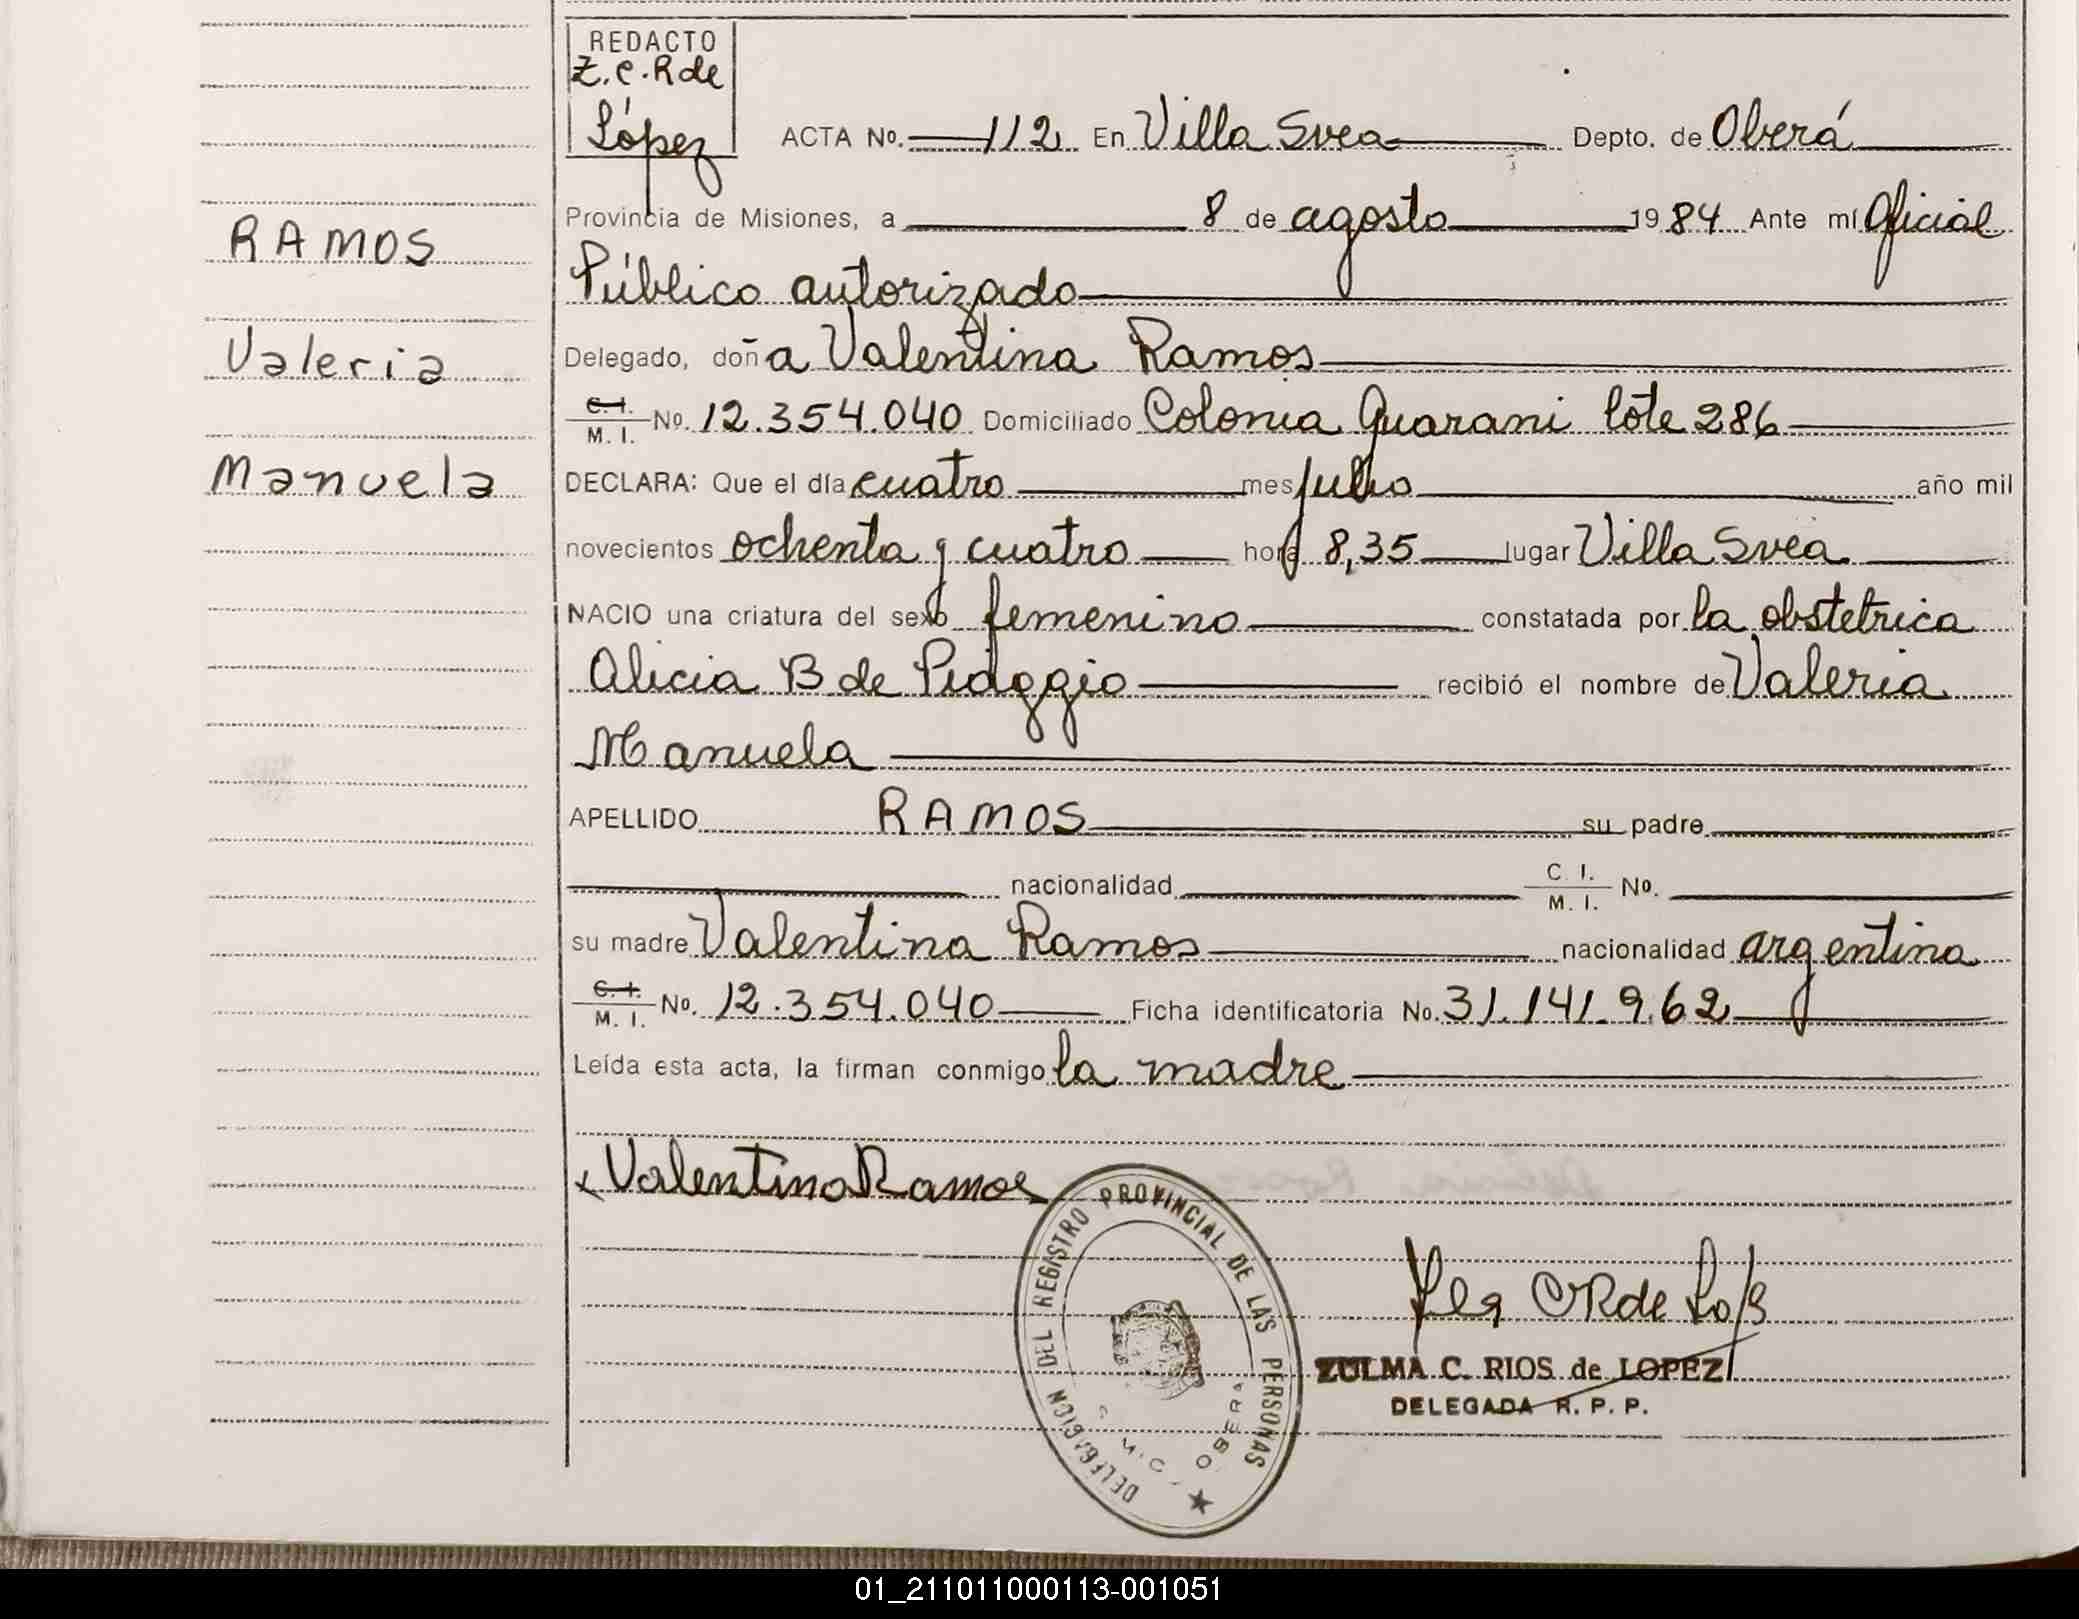 REDACTO
Z.C.R de
López
ACTA No. 112 En Villa Svea Depto. de Oberá
Provincia de Misiones, a 8 de agosto 1984 Ante mí Oficial
Público autorizado
RAMOS
Valeria
Manuela
Delegado, doña Valentina Ramos
C. I.
M. I. No. 12.354.040 Domiciliado Colonia Guarani lote 286
DECLARA: Que el día cuatro mes julio año mil
novecientos ochenta y cuatro hora 8,35 lugar Villa Svea
NACIO una criatura del sexo femenino constatada por la obstetrica
Alicia B de Piaggio recibió el nombre de Valeria
Manuela
APELLIDO RAMOS su padre
nacionalidad C. I. M. I. No.
su madre Valentina Ramos nacionalidad argentina
C. I.
M. I. No. 12.354.040 Ficha identificatoria No. 31.141.962
Leída esta acta, la firman conmigo la madre
x Valentina Ramos
DELEGACION DEL REGISTRO PROVINCIAL DE LAS PERSONAS
OBERA
ZULMA C. RIOS de LOPEZ
DELEGADA R. P. P.
01_211011000113-001051